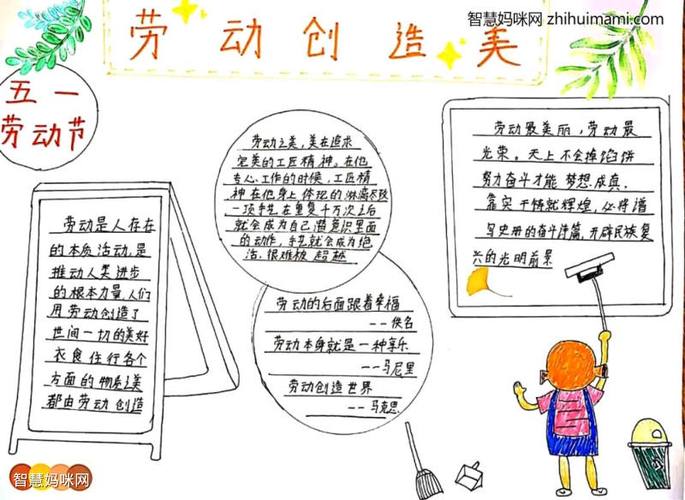 智慧妈咪网 zhihuimami.com
劳动创造美
五一
劳动节
劳动是人存在
的本质活动,是
推动人类进步
的根本力量,人们
用劳动创造了
世间一切的美好
衣食住行各个
方面的物质之美
都由劳动创造
劳动之美,美在追求
完美的工匠精神。在他
专心工作的时候,工匠精
神在他身上体现的淋漓尽致
一项手艺在重复千万次之后
就会成为自己潜意识里面
的动作,手艺就会成为绝
活,很难被超越
劳动的后面跟着幸福
--佚名
劳动本身就是一种享乐
--马尼里
劳动创造世界
--马克思
劳动最美丽,劳动最
光荣。天上不会掉馅饼
努力奋斗才能梦想成真.
靠实干铸就辉煌,必将谱
写史册的奋斗诗篇,开辟民族复
兴的光明前景
智慧妈咪网